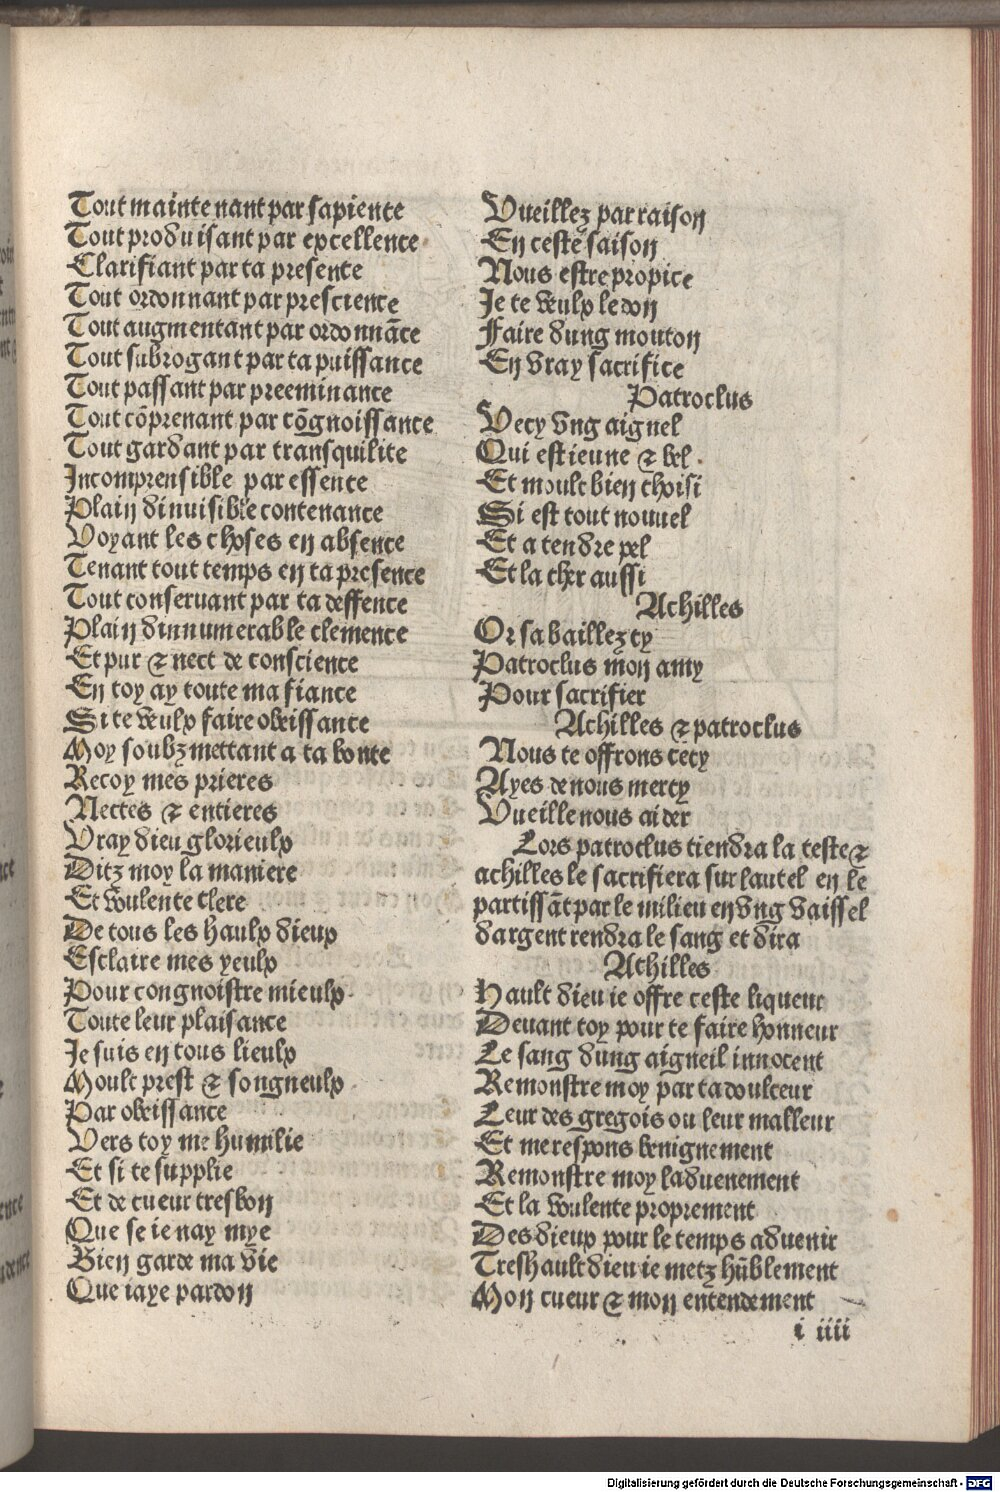 Tout maintenant par sapiente
Tout produisant par excellence
Clarifiant par ta presente
Tout ordonnant par prescience
Tout augmentant par ordonnāce
Tout subrogant par ta puissance
Tout passant par preeminance
Tout cōprenant par cōgnoissance
Tout gardant par transquilite
Incomprensible par essence
Plain dinuisible contenance
Voyant les choses en absence
Tenant tout temps en ta presence
Tout conseruant par ta deffence
Plain dinnumerable clemence
Et pur & nect de conscience
En toy ay toute ma fiance
Si te veulx faire obeissance
Moy soubz mettant a ta bonte
Recoy mes prieres
Nectes & entieres
Vray dieu glorieulx
Ditz moy la maniere
Et voulente clere
De tous les haulx dieux
Esclaire mes yeulx
Pour congnoistre mieulx
Toute leur plaisance
Je suis en tous lieulx
Moult prest & songneulx
Par obeissance
Vers toy me humilie
Et si te supplie
Et de cueur tresbon
Que se ie nay mye
Bien garde ma vie
Que iaye pardon
Vueillez par raison
En ceste saison
Nous estre propice
Je te veulx le don
Faire dung mouton
En vray sacrifice
Patroclus
Vecy vng aignel
Qui est ieune & bel.
Et moult bien choisi
Si est tout nouuel
Et a tendre pel
Et la cher aussi
Achilles
Or sa baillez cy
Patroclus mon amy
Pour sacrifier
Achilles & patroclus
Nous te offrons cecy
Ayes de nous mercy
Vueille nous aider
Lors patroclus tiendra la teste &
achilles le sacrifiera sur lautel en le
partissāt par le milieu en vng vaissel
dargent rendra le sang et dira
Achilles
Hault dieu ie offre ceste liqueur
Deuant toy pour te faire honneur
Le sang dung aigneil innocent
Remonstre moy par ta doulceur
Leur des gregois ou leur malleur
Et me respons benignement
Remonstre moy laduenement
Et la voulente proprement
Des dieux pour le temps aduenir
Treshault dieu ie metz hūblement
Mon cueur & mon entendement
i iiii
Digitalisierung gefördert durch die Deutsche Forschungsgemeinschaft - DFG